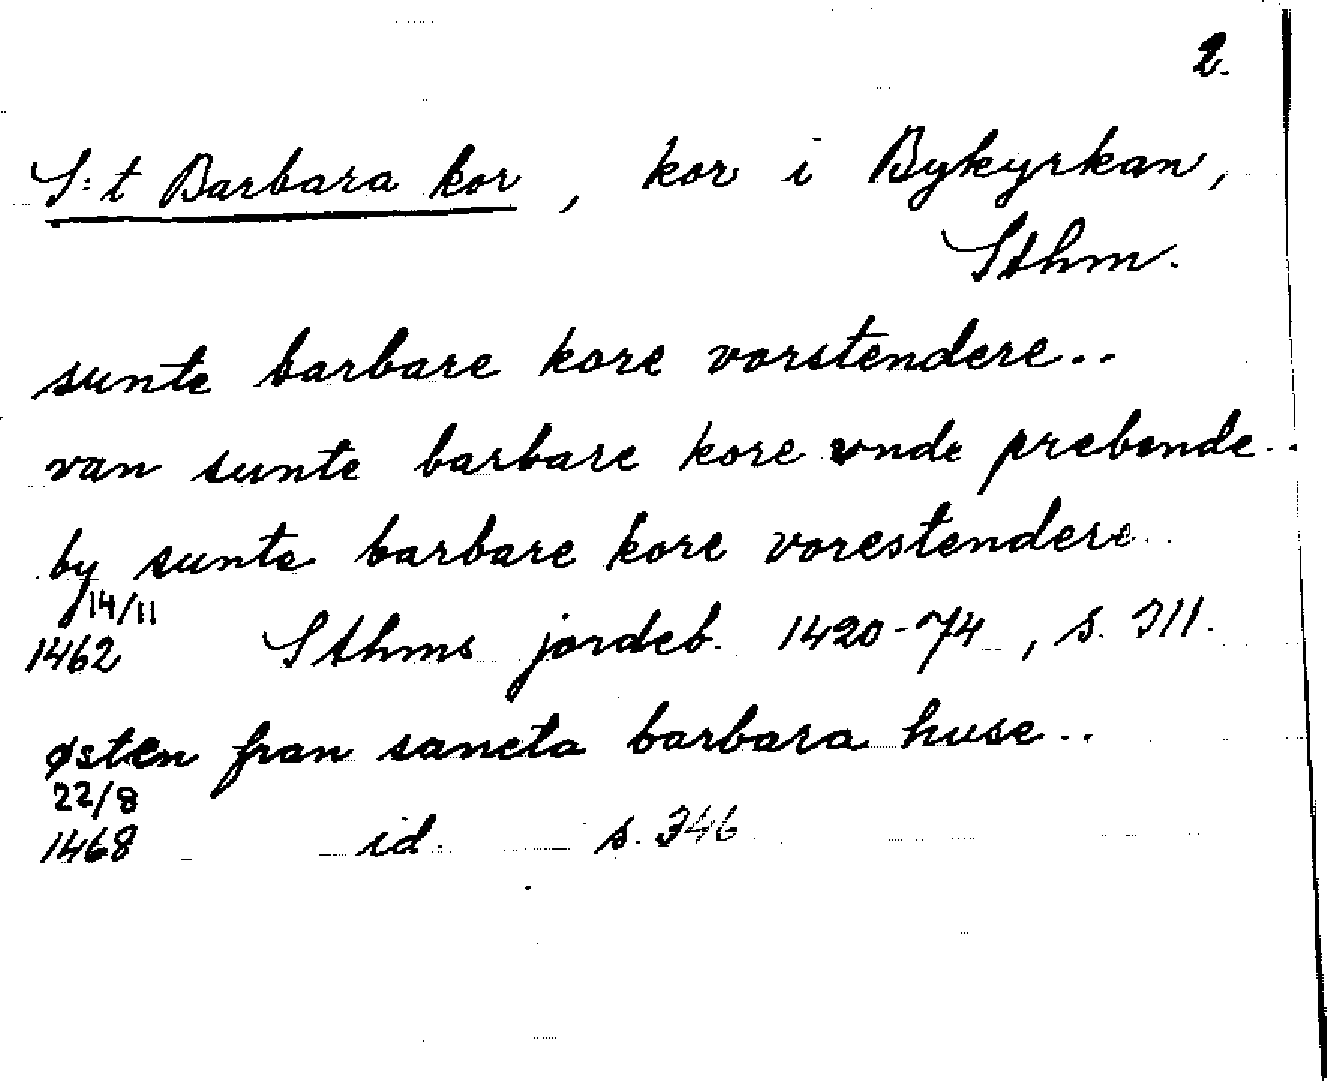 2.
S:t Barbara kor, kor i Bykyrkan,
Sthm.
sunte barbare kore vorstendere..
van sunte barbare kore vnde prebende..
by sunte barbare kore vorestendere..
14/11
1462 Sthms jordeb. 1420-74, s. 311.
østen fran sancta barbara huse..
22/8
1468 id. s. 346